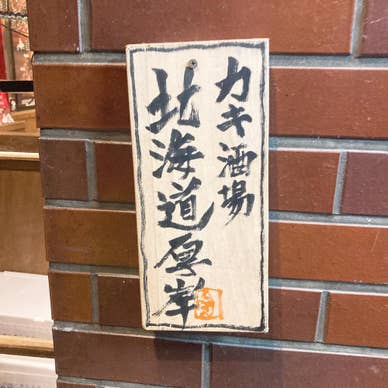 カキ酒場
北海道厚岸